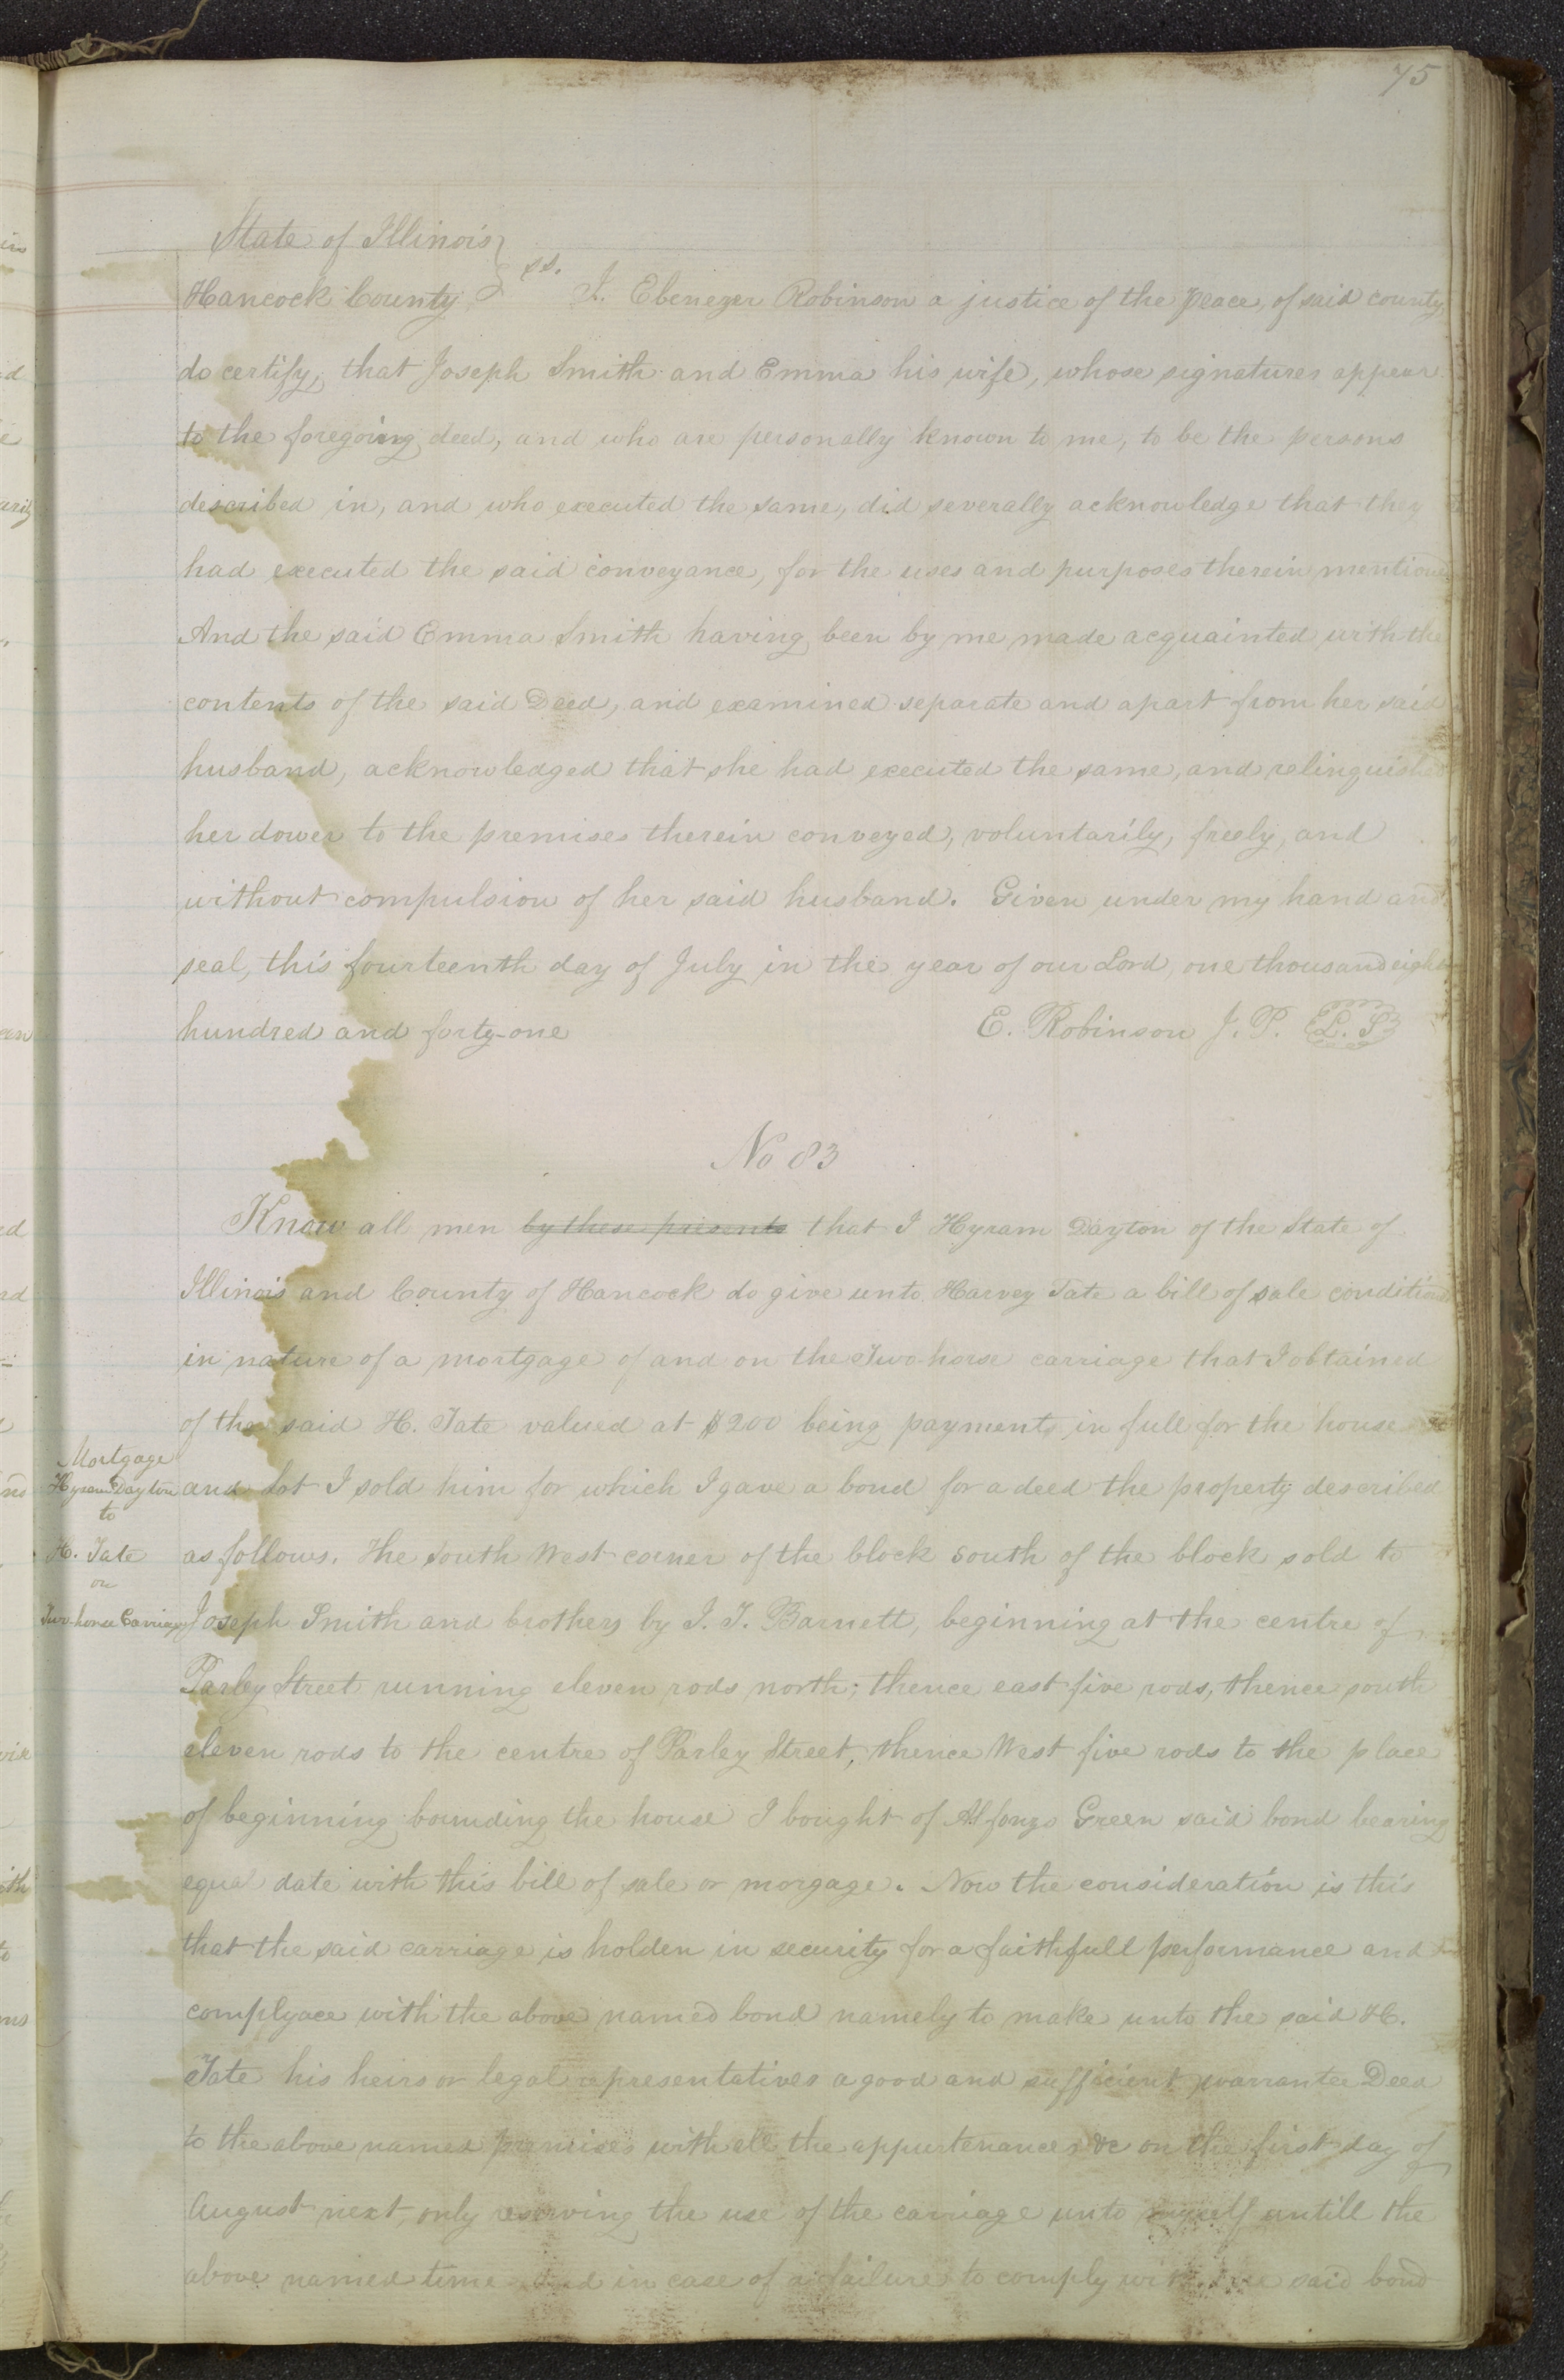 75
State of Illinois }
Hancock County } ss. I. Ebenezer Robinson a justice of the peace, of said county,
do certify, that Joseph Smith and Emma his wife, whose signatures appear
to the foregoing deed, and who are personally known to me, to be the persons
described in, and who executed the same, did severally acknowledge that they
had executed the said conveyance, for the uses and purposes therein mentioned
And the said Emma Smith having been by me made acquainted with the
contents of the said Deed, and examined separate and apart from her said
husband, acknowledged that she had executed the same, and relinquished
her dower to the premises therein conveyed, voluntarily, freely, and
without compulsion of her said husband. Given under my hand and
seal, this fourteenth day of July in the year of our Lord, one thousand eight
hundred and forty-one E. Robinson J. P. L. S
No 83
Know all men by these presents that I Hyram Dayton of the State of
Illinois and County of Hancock do give unto Harvey Tate a bill of sale condition
in nature of a mortgage of and on the Two-horse carriage that I obtained
of the said H. Tate valued at $200 being payments in full for the house
and Lot I sold him for which I gave a bond for a deed the property described
as follows. The South West corner of the block south of the block sold to
Joseph Smith and brothers by J. T. Barnett, beginning at the centre of
Parley Street running eleven rods north; thence east five rods, thence south
eleven rods to the centre of Parley Street, thence West five rods to the place
of beginning bounding the house I bought of Alfonzo Green said bond bearing
equal date with this bill of sale or morgage. Now the consideration is this
that the said carriage is holden in security for a faithfull performance and
complyace with the above named bond namely to make unto the said H.
Tate his heirs or legal representatives a good and sufficient warranter Deed
to the above named premises with all the appurtenances &c on the first day of
August next, only reserving the use of the carriage unto myself untill the
above named time and in case of a failure to comply with the said bond
Mortgage
Hyram Dayton
to
H. Tate
on
Two-horse Carriage